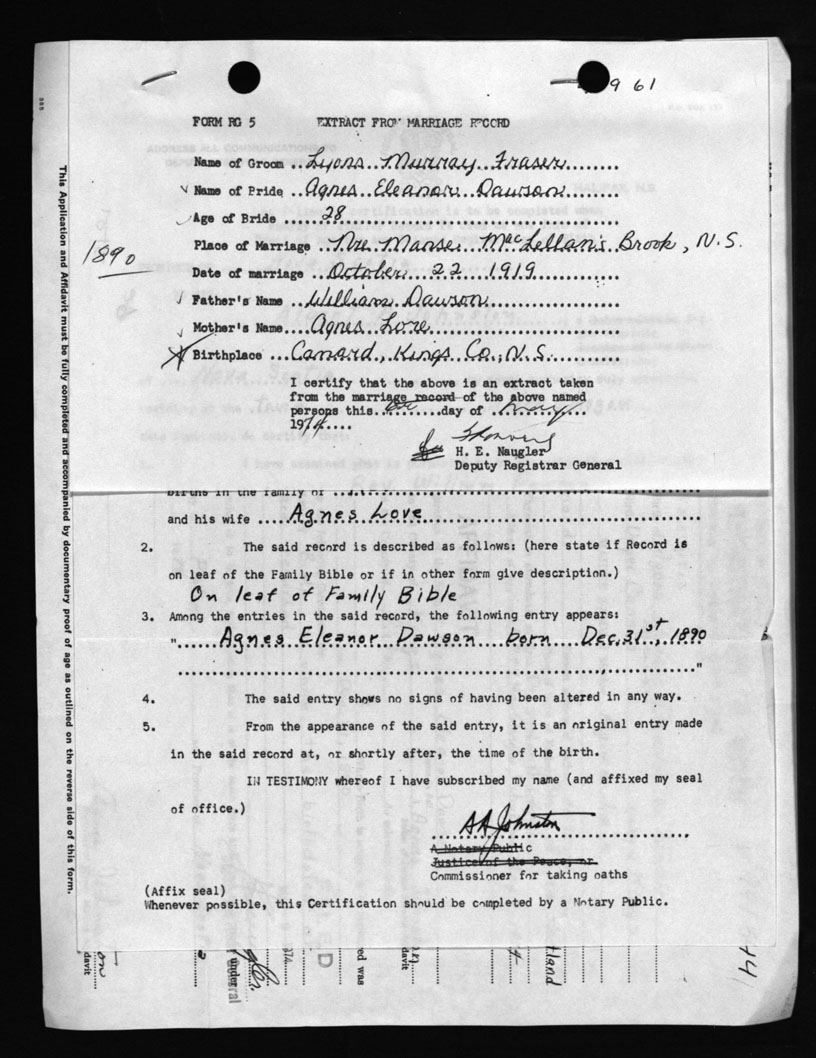 9 61
FORM RG 5 EXTRACT FROM MARRIAGE RECORD
Name of Groom .. Lyons Murray Fraser
√ Name of Pride .. Agnes Eleanor Dawson
Age of Bride ...... 28
Place of Marriage .. The Manse, MacLellan's Brook, N.S.
1890
Date of marriage ... October 22 1919
√ Father's Name .. William Dawson
√ Mother's Name.... Agnes Love
Birthplace ... Canard, Kings Co., N.S.
I certify that the above is an extract taken
from the marriage record of the above named
persons this day of May
19
H. E. Naugler
Deputy Registrar General
births in the family of
and his wife .... Agnes Love
2. The said record is described as follows: (here state if Record is
on leaf of the Family Bible or if in other form give description.)
On leaf of Family Bible
3. Among the entries in the said record, the following entry appears:
"...... Agnes Eleanor Dawson born Dec. 31st, 1890
"
4. The said entry shows no signs of having been altered in any way.
5. From the appearance of the said entry, it is an original entry made
in the said record at, or shortly after, the time of the birth.
IN TESTIMONY whereof I have subscribed my name (and affixed my seal
of office.)
A A Johnston
A Notary Public
Justice of the Peace, or
Commissioner for taking oaths
(Affix seal)
Whenever possible, this Certification should be completed by a Notary Public.
This Application and Affidavit must be fully completed and accompanied by documentary proof of age as outlined on the reverse side of this form.
davit
on
under
eral
D
ed was
davit
tland
44